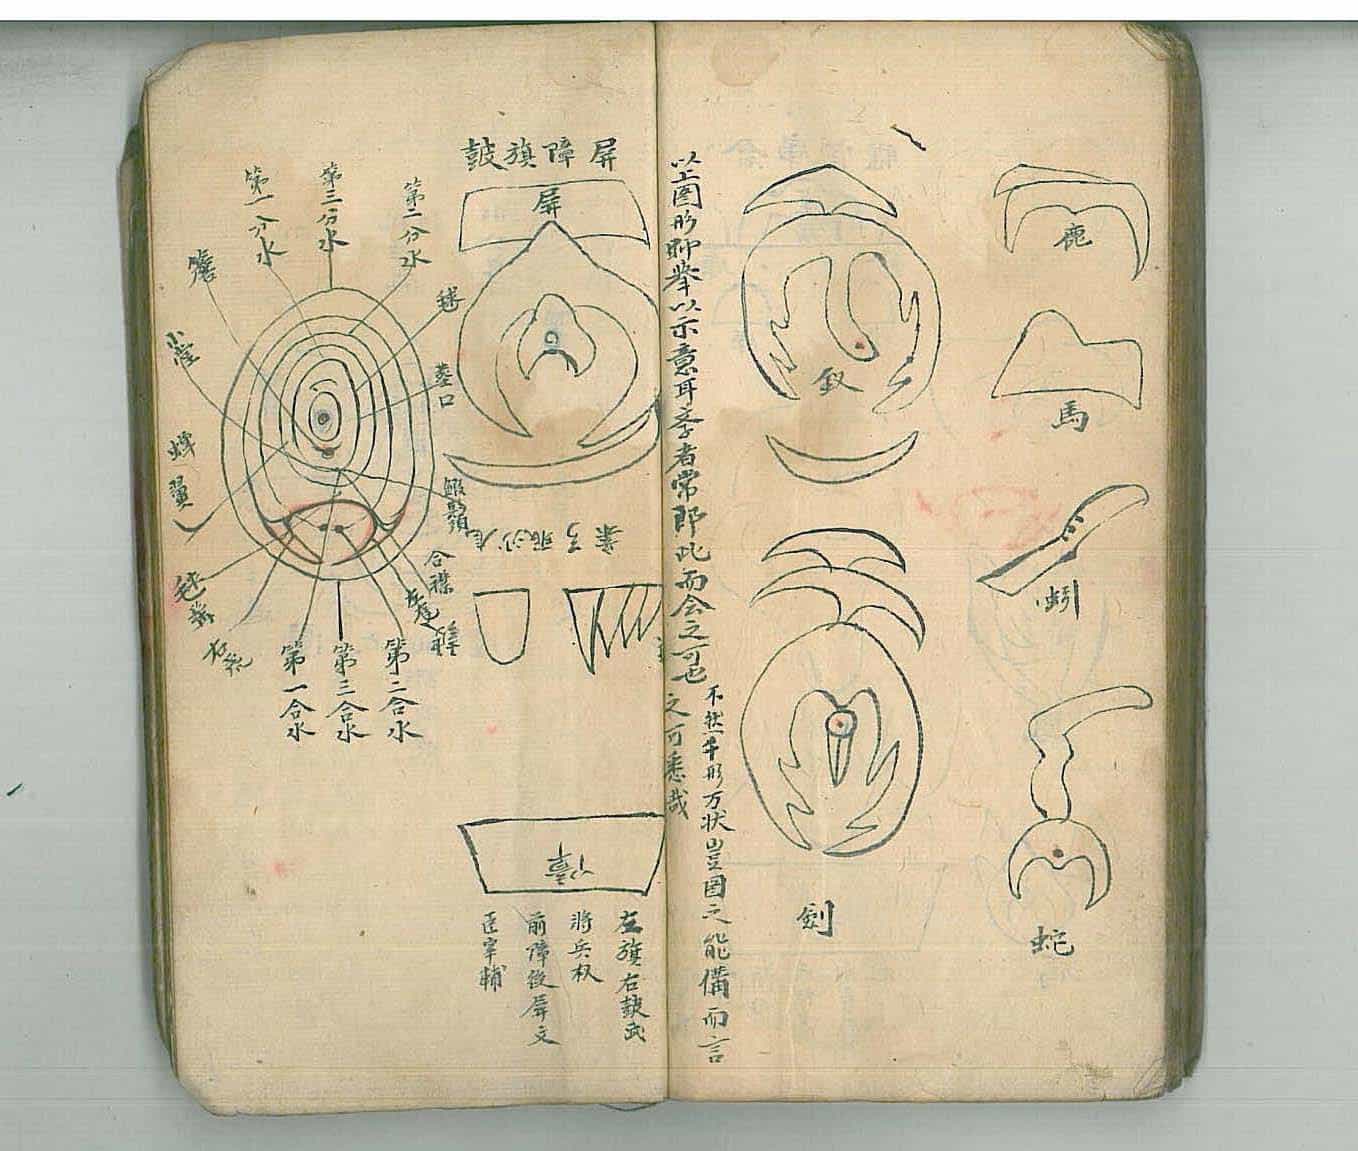 鹿
馬
蚓
蛇
釵
劍
以上圖形聊舉以示意耳李者常即此而会之可也
不然千形万状豈圖之能備而言
之可悉哉
屏障旗鼓
屏
左旗右皷武
將兵权
前障後屏文
臣宰輔
第二分水
第三分水
第一分水
毬
葬口
小堂
蝉翼
鰕鬚
合襟
第二合水
第三合水
第一合水